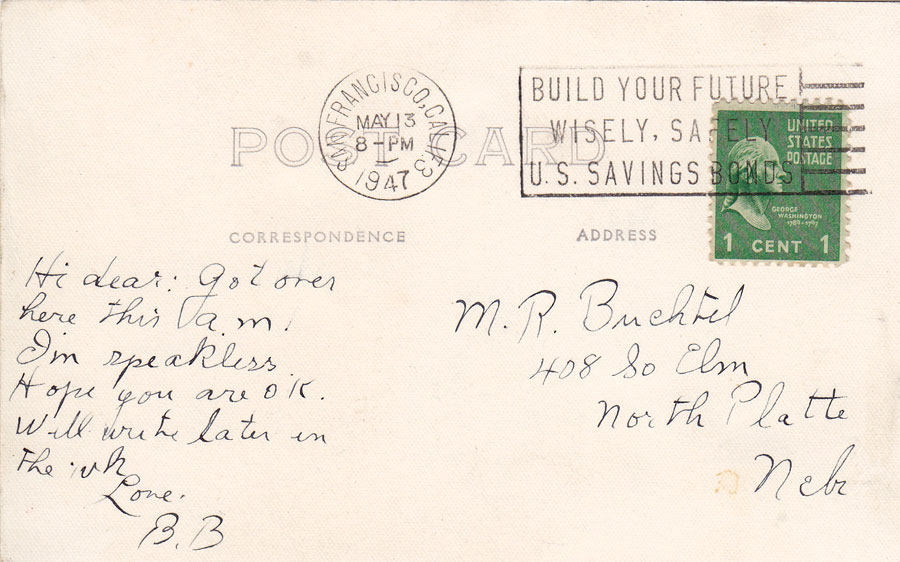 SAN FRANCISCO, CALIF. 3
MAY 13
8 - PM
1947
BUILD YOUR FUTURE
WISELY, SAFELY
U.S. SAVINGS BONDS
UNITED
STATES
POSTAGE
GEORGE
WASHINGTON
1789-1797
1 CENT 1
POST CARD
CORRESPONDENCE
ADDRESS
Hi dear: Got over
here this a.m.
I'm speakless
Hope you are O.K.
Will write later in
the wk
Love.
B.B
M.R. Buchtel
408 So Elm
North Platte
Nebr